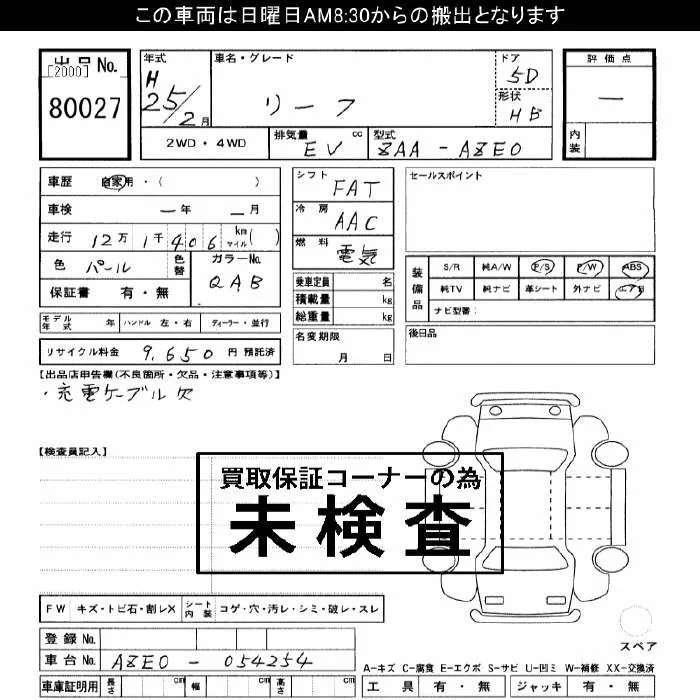 この車両は日曜日AM8:30からの搬出となります
出品No.
[2000]
80027
年式
H
25/2月
車名・グレード
リーフ
ドア
5D
形状
HB
評価点
—
内装
2WD・4WD
排気量 cc
EV
型式
ZAA - AZE0
車歴 自家用・( )
車検 —年 —月
走行 12万1千406 km マイル( )
色 パール
色替
カラーNo.
QAB
保証書 有・無
シフト
FAT
冷房
AAC
燃料
電気
乗車定員 名
積載量 kg
総重量 kg
セールスポイント
装備品
S/R 純A/W P/S P/W ABS
純TV 純ナビ 革シート 外ナビ エアB
ナビ型番:
モデル年式 年 ハンドル 左・右 ディーラー・並行
名変期限
月 日
後日品
リサイクル料金 9,650 円 預託済
【出品店申告欄(不良箇所・欠品・注意事項等)】
・充電ケーブル欠
【検査員記入】
買取保証コーナーの為
未検査
FW キズ・トビ石・割レX シート内装 コゲ・穴・汚レ・シミ・破レ・スレ
スペア
登録No.
車台No. AZE0 - 054254
A-キズ C-腐食 E-エクボ S-サビ U-凹ミ W-補修 XX-交換済
車庫証明用 長さ cm 幅 cm 高さ cm
工具 有・無 ジャッキ 有・無